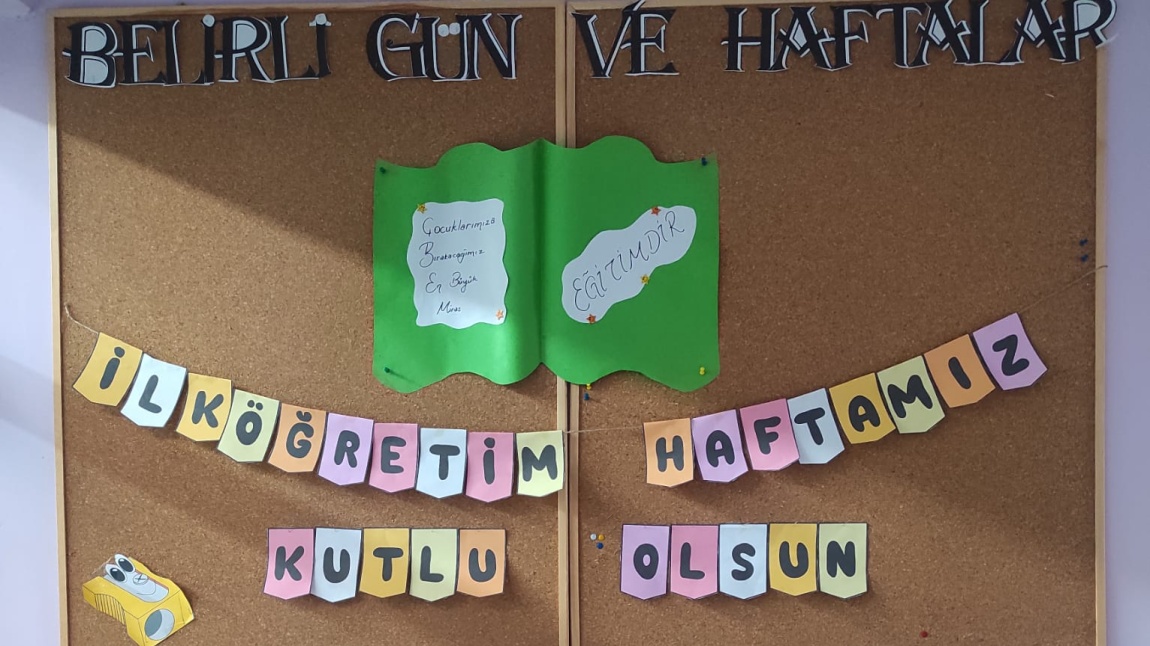 BELİRLİ GÜN VE HAFTALAR
Çocuklarımıza
Bırakacağımız
En Büyük
Miras
EĞİTİMDİR
İLKÖĞRETİM HAFTAMIZ
KUTLU OLSUN